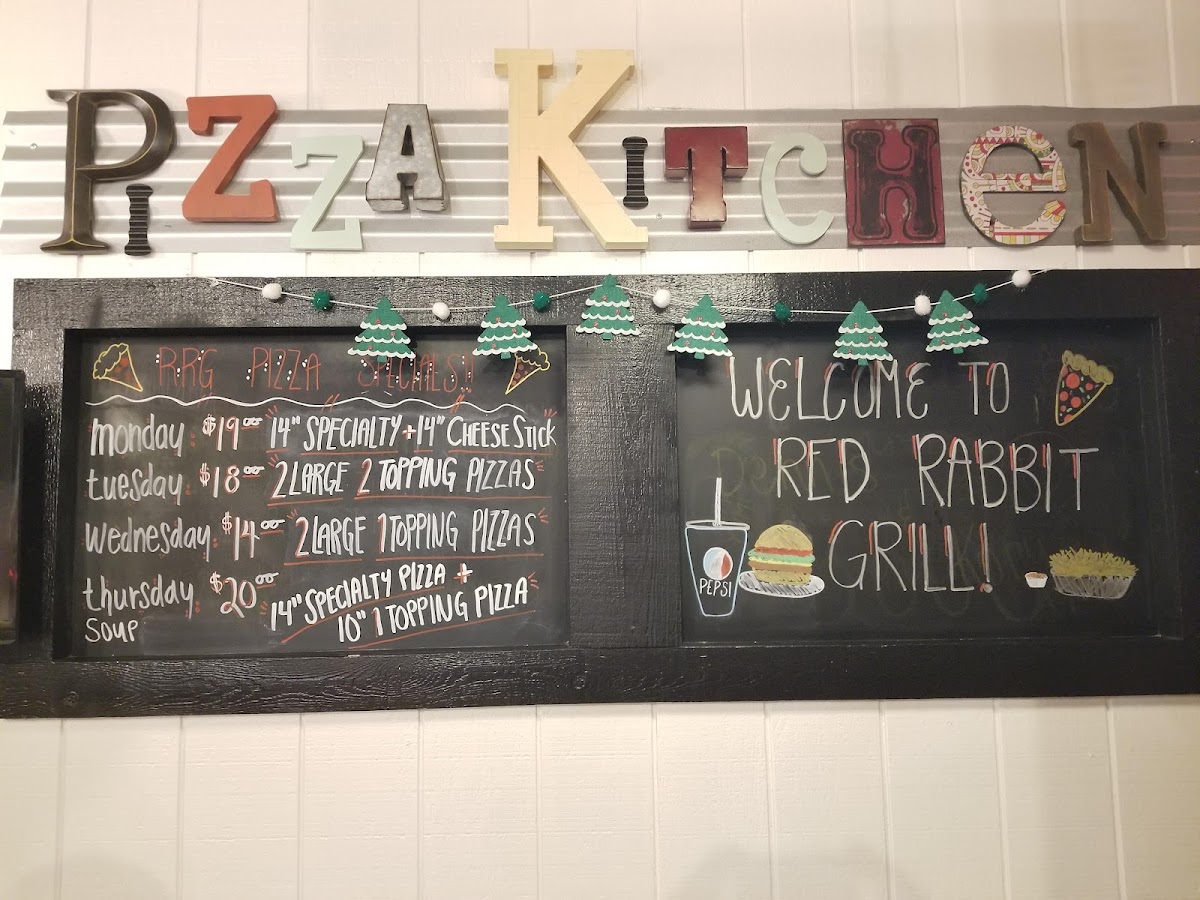 PiZZA KiTCHeN
RRG PIZZA SPECIALS!!
monday: $19.00 14" SPECIALTY + 14" CHEESE STICK
tuesday: $18.00 2 LARGE 2 TOPPING PIZZAS
Wednesday: $14.00 2 LARGE 1 TOPPING PIZZAS
thursday: $20.00 14" SPECIALTY PIZZA +
10" 1 TOPPING PIZZA
SOUP
WELCOME TO
RED RABBIT
GRILL!
PEPSI